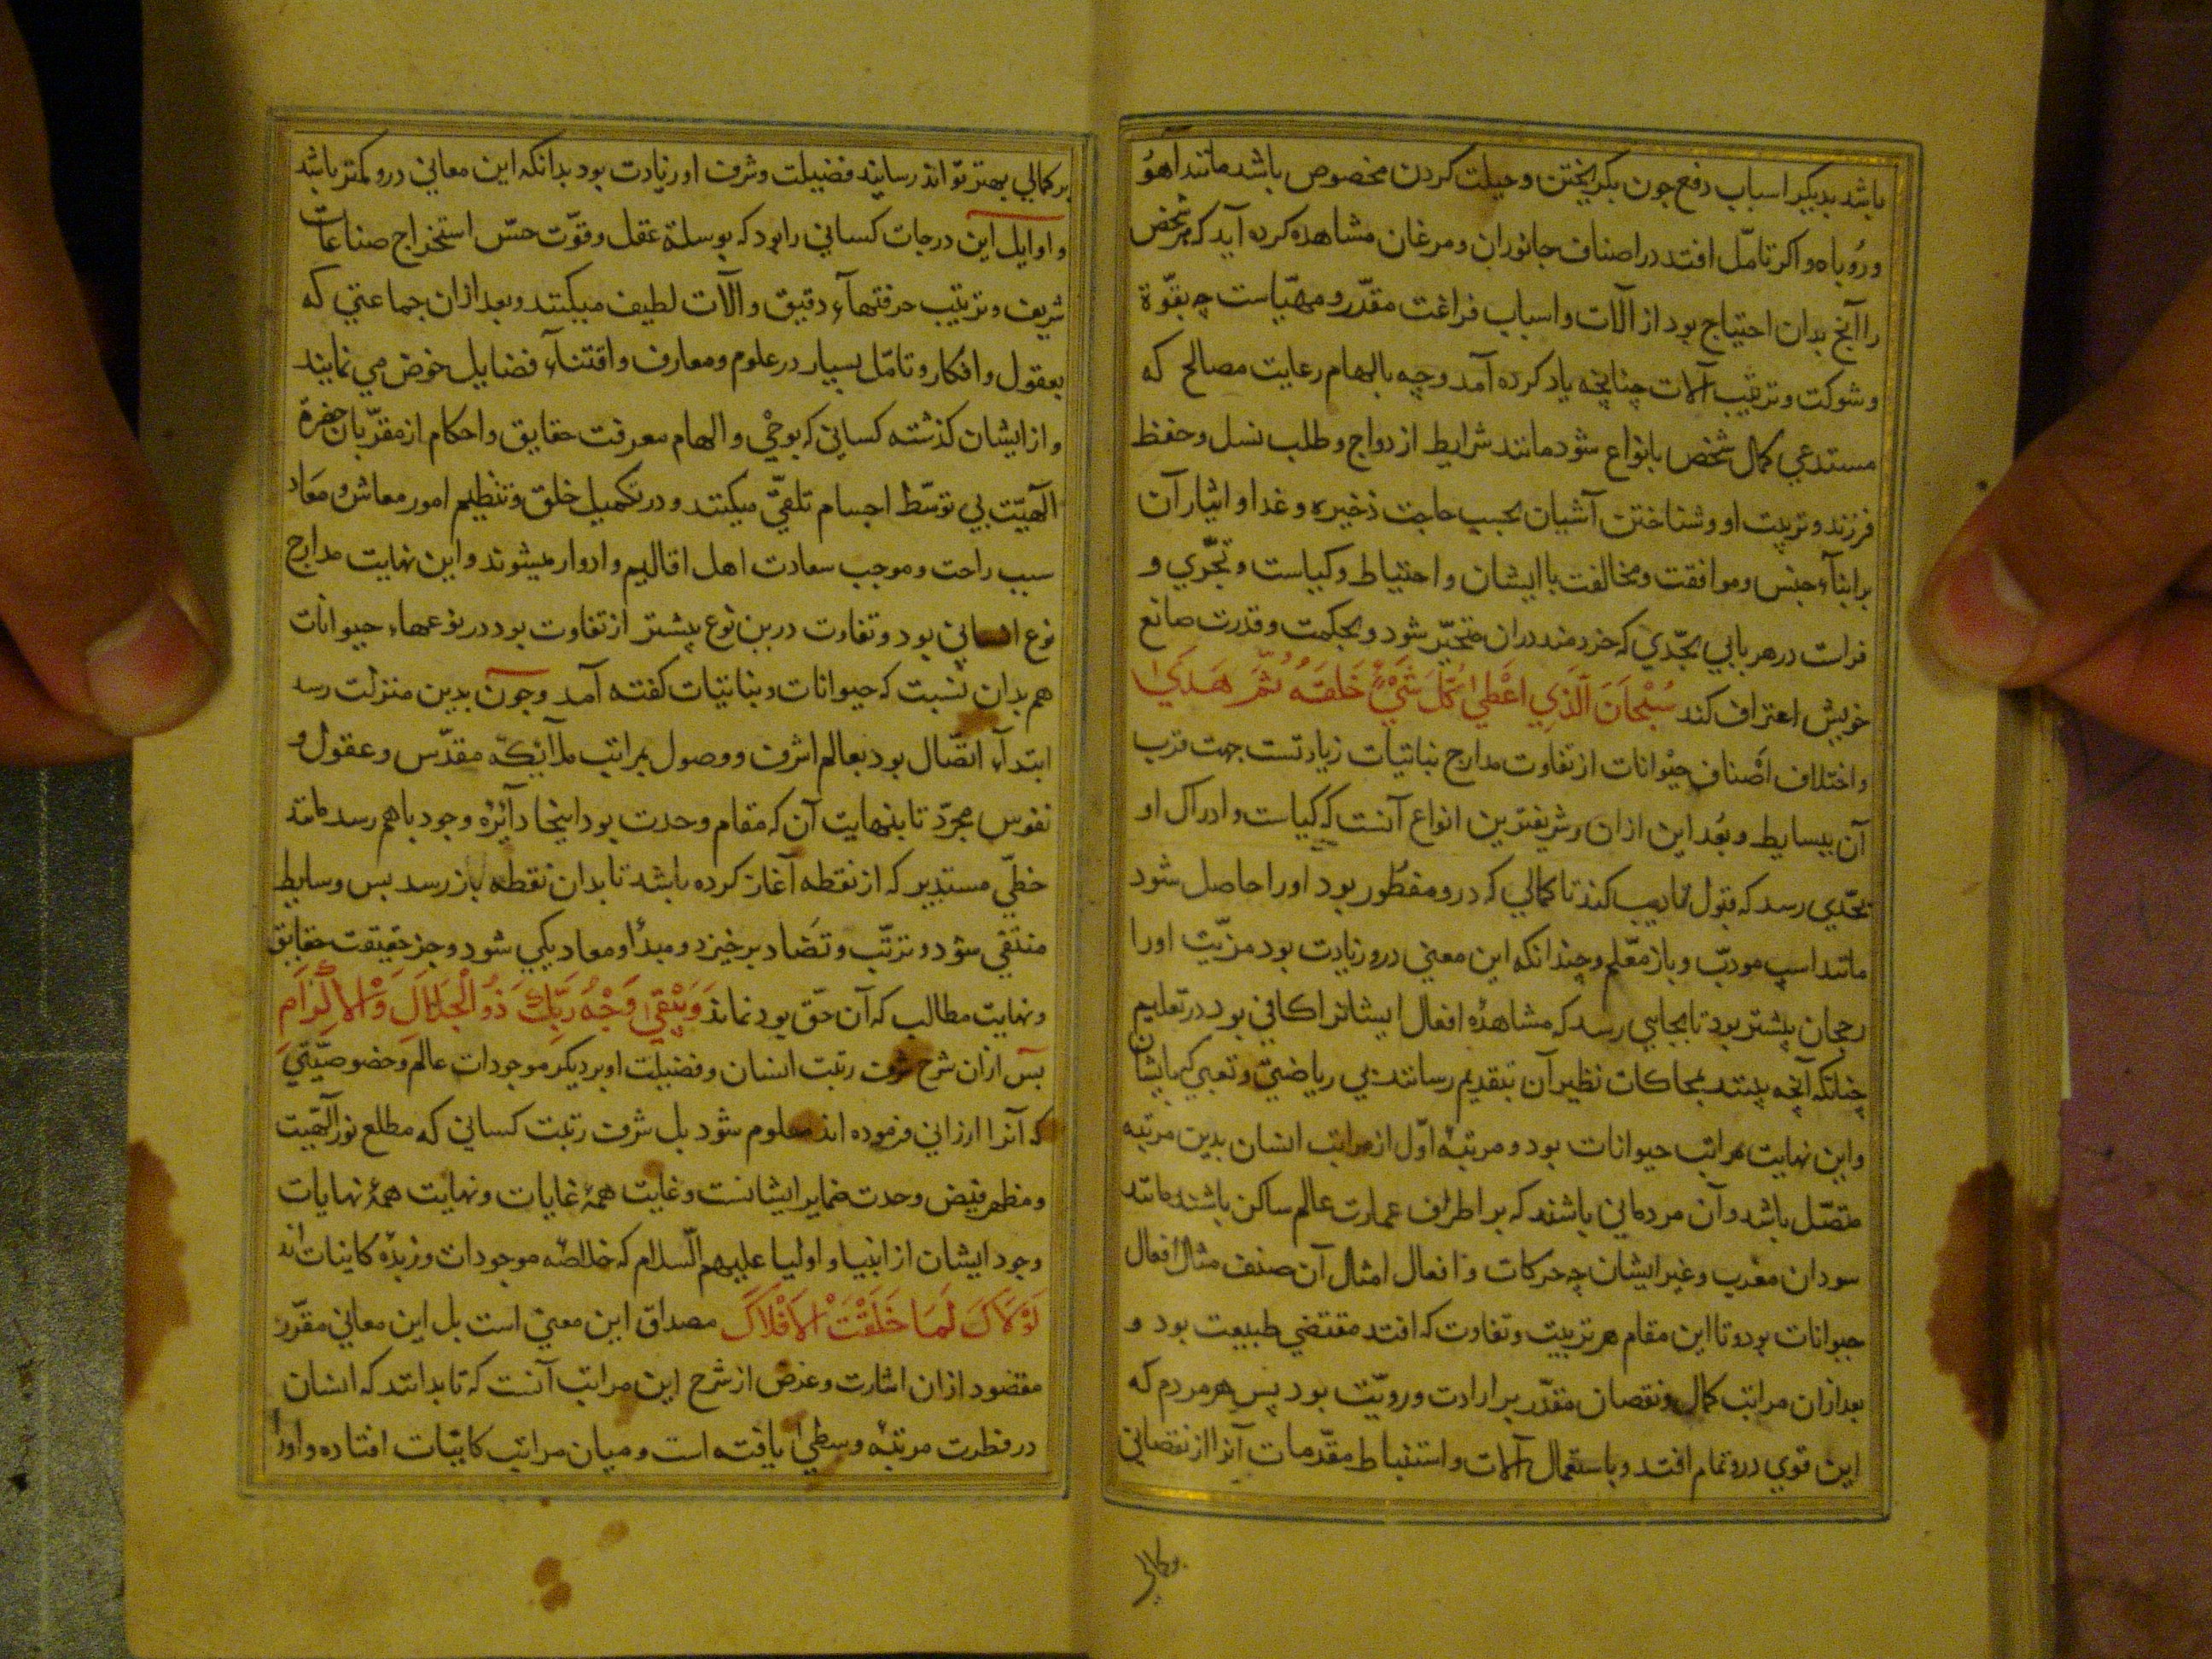 باشد بدیکر اسباب دفع جون بکریختن و حیلت کردن مخصوص باشد مانند اهو
و رُوباه و اکر تامّل افتد در اصناف جانوران و مرغان مشاهده کرده آید که هر شخص
را آنچ بدان احتیاج بود از آلات و اسباب فراغت مقدّر و مهیّاست چه بقوّة
و شوکت و ترتیب آلات چنانچه یاد کرده آمد و چه بالهام رعایت مصالح که
مستدعی کمال شخص بانواع شود مانند شرایط ازدواج و طلب نسل و حفظ
فرزند و تربیت او و شناختن آشیان بحسب حاجت ذخیره و غدا و ایثار آن
بر ابنآء جنس و موافقت و مخالفت با ایشان و احتیاط و کیاست و تحّری و
فراست در هر بابی بحّدی که خردمند دران متحیّر شود و بحکمت و قدرت صانع
خویش اعتراف کند سُبْحَانَ الَّذِی اَعْطیٰ کُلَّ شَیْءٍ خَلَقَهُ ثُمَّ هَدَیٰ
و اختلاف اصْناف حیْوانات از تفاوت مدارج نباتیات زیادتست جهت قرب
آن ببسایط و بُعد این ازان و شریفترین انواع آنست که کیاست و ادراک او
بحّدی رسد که قبول تادیب کند تا کمالی که درو مفطُور بود اورا حاصل شود
مانند اسپ مودّب و باز معّلم و چندانکه این معنی درو زیادت بود مزیّت اورا
رجحان بیشتر بود تا بجایی رسد که مشاهدهٔ افعال ایشانرا کافی بود در تعلیم
چنانکه آنچه بینند بمحاکات نظیر آن بتقدیم رسانند بی ریاضتی و تعبی که بایشان
و این نهایت مراتب حیوانات بود و مرتبهٔ اوّل از مراتب انسان بدین مرتبه
متصّل باشد و آن مردمانی باشند که بر اطراف عمارت عالم ساکن باشند مانند
سودان مغرب و غیر ایشان چه حرکات و افعال امثال آن صنف مثال افعال
حیوانات بود و تا این مقام هر تربیت و تفاوت که افتد مقتضی طبیعت بود و
بعد ازان مراتب کمال و نقصان مقدّر بر ارادت و رویّت بود پس هر مردم که
این قوی درو تمام افتد و باستعمال آلات و استنباط مقدّمات آنرا از نقصانی
بر کمالی بهتر تواند رسانید فضیلت و شرف او زیادت بود بدانکه این معانی درو کمتر باشد
و اوایل این درجات کسانی را بود که بوسلهٔ عقل و قوّت حسّ استخراج صناعات
شریف و ترتیب حرفتهآء دقیق و آلات لطیف میکنند و بعد ازان جماعتی که
بعقول و افکار و تامّل بسیار در علوم و معارف و اقتنآء فضایل خوض می نمایند
و از ایشان کذشته کسانی که بوحْی و الهام معرفت حقایق و احکام از مقرّبان حضرة
الٓهیّت بی توسّط اجسام تلقّی میکنند و در تکمیل خلق و تنظیم امور معاش و مَعَاد
سبب راحت و موجب سعادت اهل اقالیم و ادوار میشوند و این نهایت مدارج
نوع انسانی بود و تفاوت درین نوع بیشتر از تفاوت بود در نوعهاء حیوانات
هم بدان نسبت که حیوانات و نباتیات کفته آمد و جون بدین منزلت رسد
ابتدآء اتصّال بود بعالم اشرف و وصول بمراتب ملآئکهٔ مقدّس و عقول و
نفوس مجرّد تا بنهایت آن که مقام وحدت بود اینجا دآئرهٔ وجود باهم رسد مانند
خطّی مستدیر که از نقطه آغاز کرده باشد تا بدان نقطه باز رسد بس وسایط
منتفی شود و ترتّب و تضَاد برخیزد و مبدأ و معاد یکی شود و جز حقیقت حقایق
و نهایت مطالب که آن حّق بود نماند وَیَبْقیٰ وَجْهُ رَبِّكَ ذُو الْجَلَالِ وَ الْاِکْرَامِ
بس ازان شرح شرف رتبت انسان و فضیلت او بر دیکر موجودات عالم و خصوصیّتی
که آنرا ارزانی فرموده اند معلوم شود بل شرف رتبت کسانی که مطلع نور الٓهیّت
و مظهر فیض وحدت ضمایر ایشانست و غایت همهٔ غایات و نهایت همهٔ نهایات
وجود ایشان از انبیا و اولیا علیهم السّلام که خلاصهٔ موجودات و زبدهٔ کاینات اند
لَوْلَاكَ لَمَا خَلَقْتُ الْاَفْلَاكَ مصداق این معنی است بل این معانی مقرّر
مقصود ازان اشارت و غرض از شرح این مراتب آنست که تا بدانند که انسان
در فطرت مرتبهٔ وسطیٰ یافته است و میان مراتب کاینات افتاده و اورا